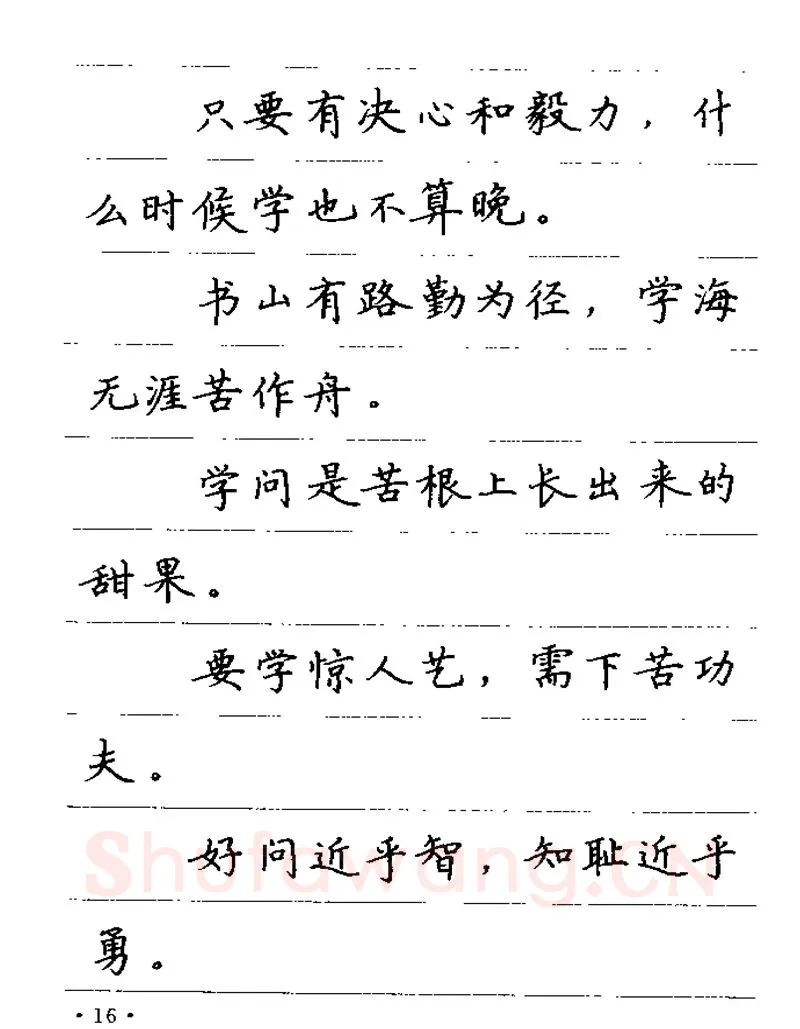 只要有决心和毅力，什
么时候学也不算晚。
书山有路勤为径，学海
无涯苦作舟。
学问是苦根上长出来的
甜果。
要学惊人艺，需下苦功
夫。
好问近乎智，知耻近乎
勇。
Shufawang.CN
·16·